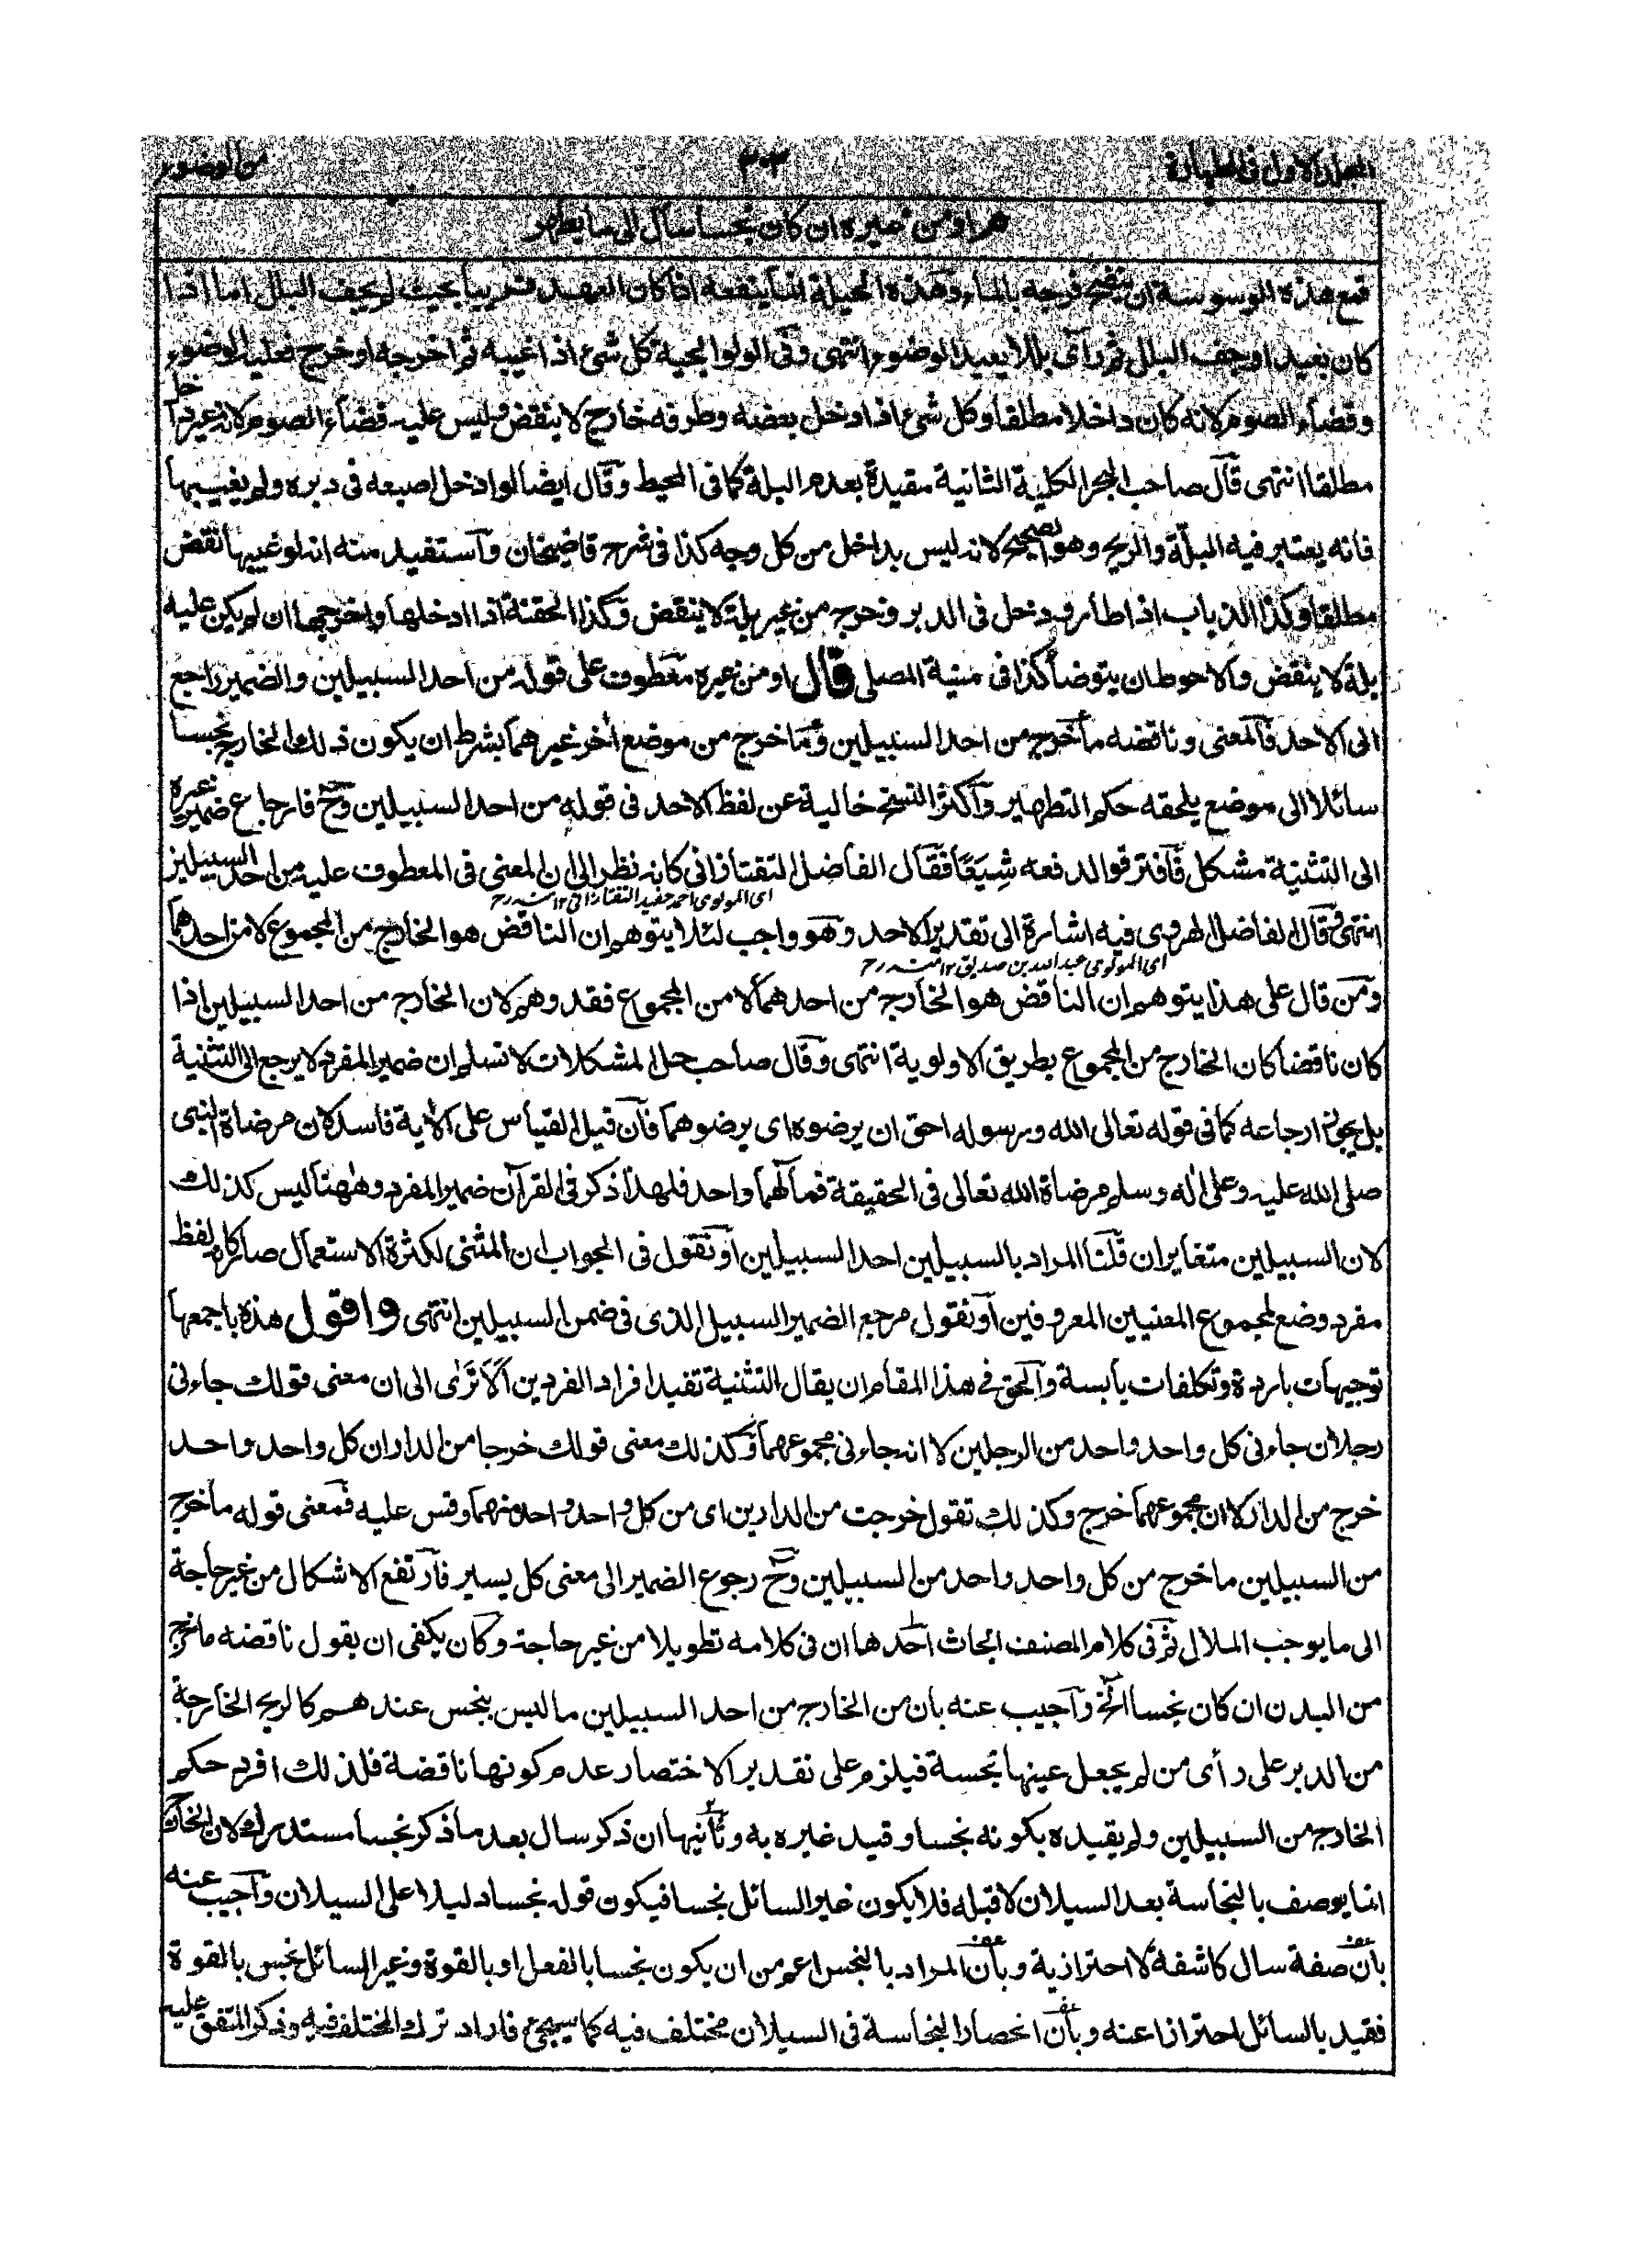 المجلد الاول فى الطهارة ٣٠٣ من الوضوء
هر او من غيره ان كان نجسا سال الى ما يطهر
قمع هذه الوسوسة ان ينضح فرجه بالماء وهذه الحيلة انما ينفعه اذا كان العهد قريبا بحيث لم يجف البلل اما اذا
كان بعيدا وجف البلل ثم رأى بللا يعيد الوضوء انتهى وفى الولوالجية كل شئ اذا غيبه ثم اخرجه او خرج فعليه الوضوء
وقضاء الصوم لانه كان داخلا مطلقا وكل شئ اذا ادخل بعضه وطرفه خارج لا ينقض وليس عليه قضاء الصوم لانه غير داخل
مطلقا انتهى قال صاحب البحر الكلية الثانية مقيدة بعدم البلة كما فى المحيط وقال ايضا لو ادخل اصبعه فى دبره ولم يغيبها
فانه يعتبر فيه البلة والريح وهو الصحيح لانه ليس بداخل من كل وجه كذا فى شرح قاضيخان واستفيد منه انه لو غيبها نقض
مطلقا وكذا الذباب اذا طار ودخل فى الدبر وخرج من غير بلة لا ينقض وكذا الحقنة اذا ادخلها واخرجها ان لم يكن عليه
بلة لا ينقض والاحوط ان يتوضأ كذا فى منية المصلى قال او من غيره معطوف على قوله من احد السبيلين والضمير راجع
الى الاحد فالمعنى وناقضه ما خرج من احد السبيلين وما خرج من موضع أخر غيرهما بشرط ان يكون ذلك الخارج نجسا
سائلا الى موضع يلحقه حكم التطهير واكثر النسخ خالية عن لفظ الاحد فى قوله من احد السبيلين وح فارجاع ضمير غيره
الى التثنية مشكل فافترقوا لدفعه شِيَعًا فقال الفاضل التفتازانى كانه نظر الى ان المعنى فى المعطوف عليه من احد السبيلين
اى المولوى احمد حفيد التفتازانى ١٢ منه رح
انتهى وقال الفاضل الهروى فيه اشارة الى تقدير الاحد وهو واجب لئلا يتوهم ان الناقض هو الخارج من المجموع لا من احدهما
اى المولوى عبد الله بن صديق ١٢ منه رح
ومن قال على هذا يتوهم ان الناقض هو الخارج من احدهما لا من المجموع فقد وهم لان الخارج من احد السبيلين اذا
كان ناقضا كان الخارج من المجموع بطريق الاولوية انتهى وقال صاحب حل المشكلات لا نسلم ان ضمير المفرد لا يرجع الى التثنية
بل يجوز ارجاعه كما فى قوله تعالى الله ورسوله احق ان يرضوه اى يرضوهما فان قيل القياس على الأية فاسد لان مرضاة النبى
صلى الله عليه وعلى أله وسلم مرضاة الله تعالى فى الحقيقة فمآلهما واحد فلهذا ذكر فى القرآن ضمير المفرد وههنا ليس كذلك
لان السبيلين متغايران قلنا المراد بالسبيلين احد السبيلين او نقول فى الجواب ان المثنى لكثرة الاستعمال صار كانه لفظ
مفرد وضع لمجموع المعنيين المعروفين او نقول مرجع الضمير السبيل الذى فى ضمن السبيلين انتهى واقول هذه باجمعها
توجيهات باردة وتكلفات يابسة والحق فى هذا المقام ان يقال التثنية تفيد افراد الفردين اَلَا تَرٰى الى ان معنى قولك جاءنى
رجلان جاءنى كل واحد واحد من الرجلين لا انه جاءنى مجموعهما وكذلك معنى قولك خرجا من الدار ان كل واحد واحد
خرج من الدار لا ان مجموعهما خرج وكذلك تقول خرجت من الدارين اى من كل واحد واحد منهما وقس عليه فمعنى قوله ما خرج
من السبيلين ما خرج من كل واحد واحد من السبيلين وح رجوع الضمير الى معنى كل يسير فارتفع الاشكال من غير حاجة
الى ما يوجب الملال ثم فى كلام المصنف ابحاث احدها ان فى كلامه تطويلا من غير حاجة وكان يكفى ان يقول ناقضه ما خرج
من البدن ان كان نجسا الخ واجيب عنه بان من الخارج من احد السبيلين ما ليس بنجس عندهم كالريح الخارجة
من الدبر على رأى من لم يجعل عينها نجسة فيلزم على تقدير الاختصار عدم كونها ناقضة فلذلك افرد حكم
الخارج من السبيلين ولم يقيده بكونه نجسا وقيد غيره به وثانيها ان ذكر سال بعد ما ذكر نجسا مستدرك لان الخارج
انما يوصف بالنجاسة بعد السيلان لا قبله فلا يكون غير السائل نجسا فيكون قوله نجسا دليلا على السيلان واجيب عنه
بان صفة سال كاشفة لا احترازية وبان المراد بالنجس اعم من ان يكون نجسا بالفعل او بالقوة وغير السائل نجس بالقوة
فقيد بالسائل احترازا عنه وبان انحصار النجاسة فى السيلان مختلف فيه كما سيجئ فاراد ترك المختلف فيه وذكر المتفق عليه